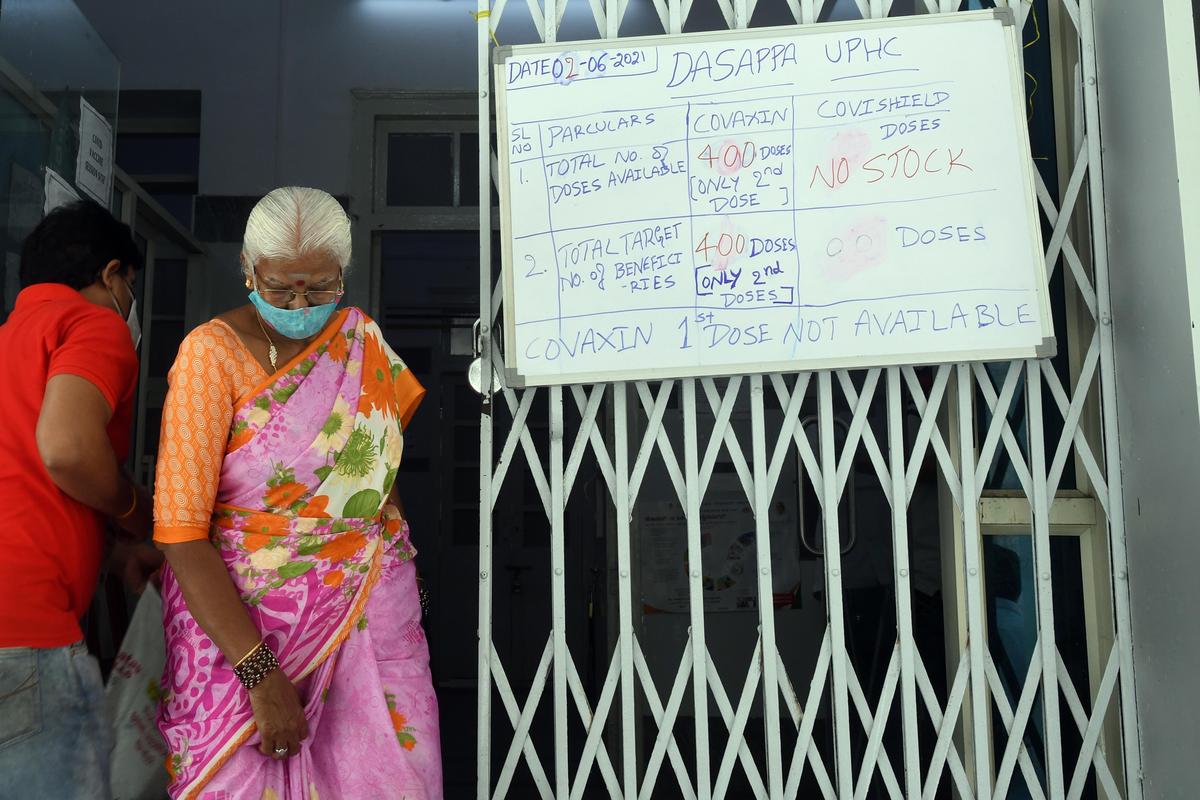 DATE 02-06-2021
DASAPPA UPHC
SL NO
PARCULARS
COVAXIN
COVISHIELD
DOSES
1.
TOTAL NO. of
DOSES AVAILABLE
400 DOSES
[ONLY 2nd
DOSE]
NO STOCK
2.
TOTAL TARGET
NO. of BENEFICI
-RIES
400 DOSES
[ONLY 2nd
DOSES]
00 DOSES
COVAXIN 1st DOSE NOT AVAILABLE
COVID
VACCINE